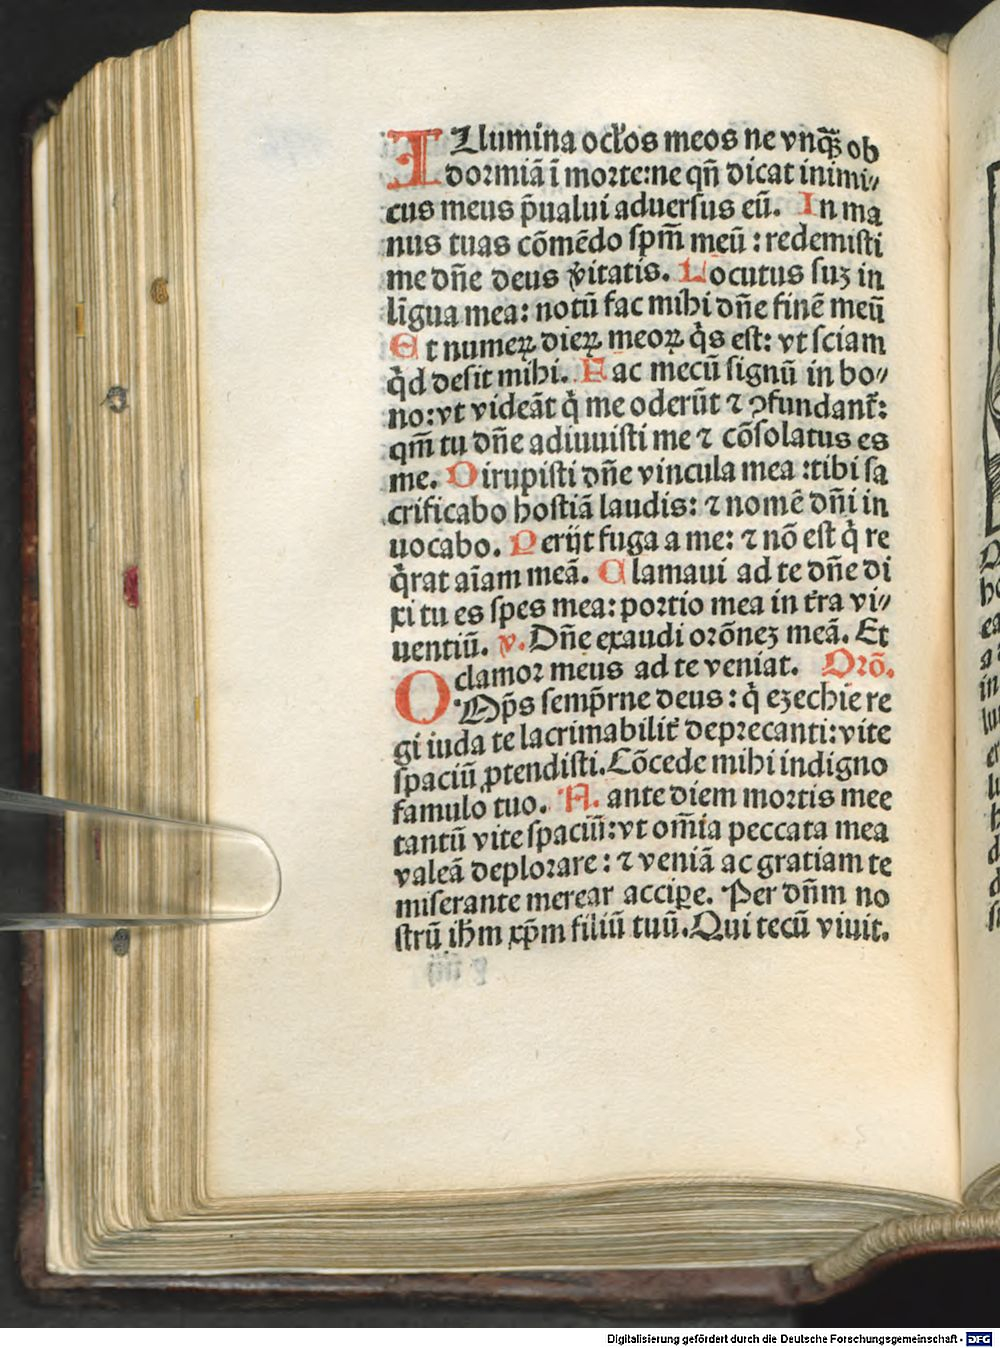 ILlumina oc̄los meos ne vnq̄ꝫ ob
dormiā ī morte:ne qn̄ dicat inimi⸗
cus meus p̄ualui aduersus eū. In ma
nus tuas cōmēdo spm̄ meū : redemisti
me dn̄e deus v̄itatis. Locutus suꝫ in
lin̄gua mea: notū fac mihi dn̄e finē meū
Et numeꝝ dieꝝ meoꝝ q̇s est: vt sciam
q̇d desit mihi. Fac mecū signū in bo⸗
no:vt videāt q̇ me oderūt ⁊ ꝯfundant̄:
qm̄ tu dn̄e adiuuisti me ⁊ cōsolatus es
me. Dirupisti dn̄e vincula mea :tibi sa
crificabo hostiā laudis: ⁊ nomē dn̄i in
uocabo. Perijt fuga a me: ⁊ nō est q̇ re
q̇rat aīam meā. Clamaui ad te dn̄e di
xi tu es spes mea: portio mea in t̄ra vi⸗
uentiū. v. Dn̄e exaudi orōneꝫ meā. Et
clamor meus ad te veniat. Orō.
OMp̄s semp̄rne deus : q̇ ezechie re
gi iuda te lacrimabilit̄ deprecanti:vite
spaciū ꝓtendisti. Cōcede mihi indigno
famulo tuo. N. ante diem mortis mee
tantū vite spaciū:vt om̄ia peccata mea
valeā deplorare : ⁊ veniā ac gratiam te
miserante merear accipe. Per dn̄m no
strū ih̄m xp̄m filiū tuū. Qui tecū viuit.
Digitalisierung gefördert durch die Deutsche Forschungsgemeinschaft - DFG